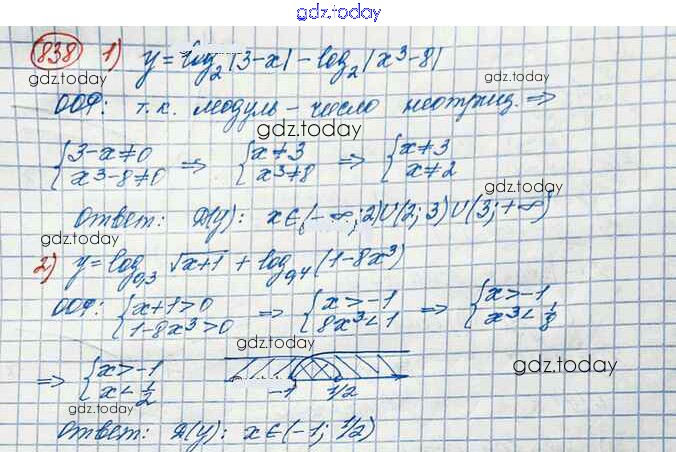 gdz.today
838 1) y = log₂|3-x| - log₂|x³-8|
gdz.today
gdz.today
ООФ: т.к. модуль - число неотриц. ⇒
gdz.today
{3-x≠0 ⇒ {x≠3 ⇒ {x≠3
x³-8≠0 x³≠8 x≠2
gdz.today
Ответ: D(y): x∈(-∞; 2)∪(2; 3)∪(3; +∞)
gdz.today
2) y = log₀,₃ √x+1 + log₀,₄ (1-8x³)
gdz.today
ООФ: {x+1>0 ⇒ {x>-1 ⇒ {x>-1
1-8x³>0 8x³<1 x³<1/8
gdz.today
gdz.today
⇒ {x>-1
x<1/2
-1 1/2
gdz.today
Ответ: D(y): x∈(-1; 1/2)